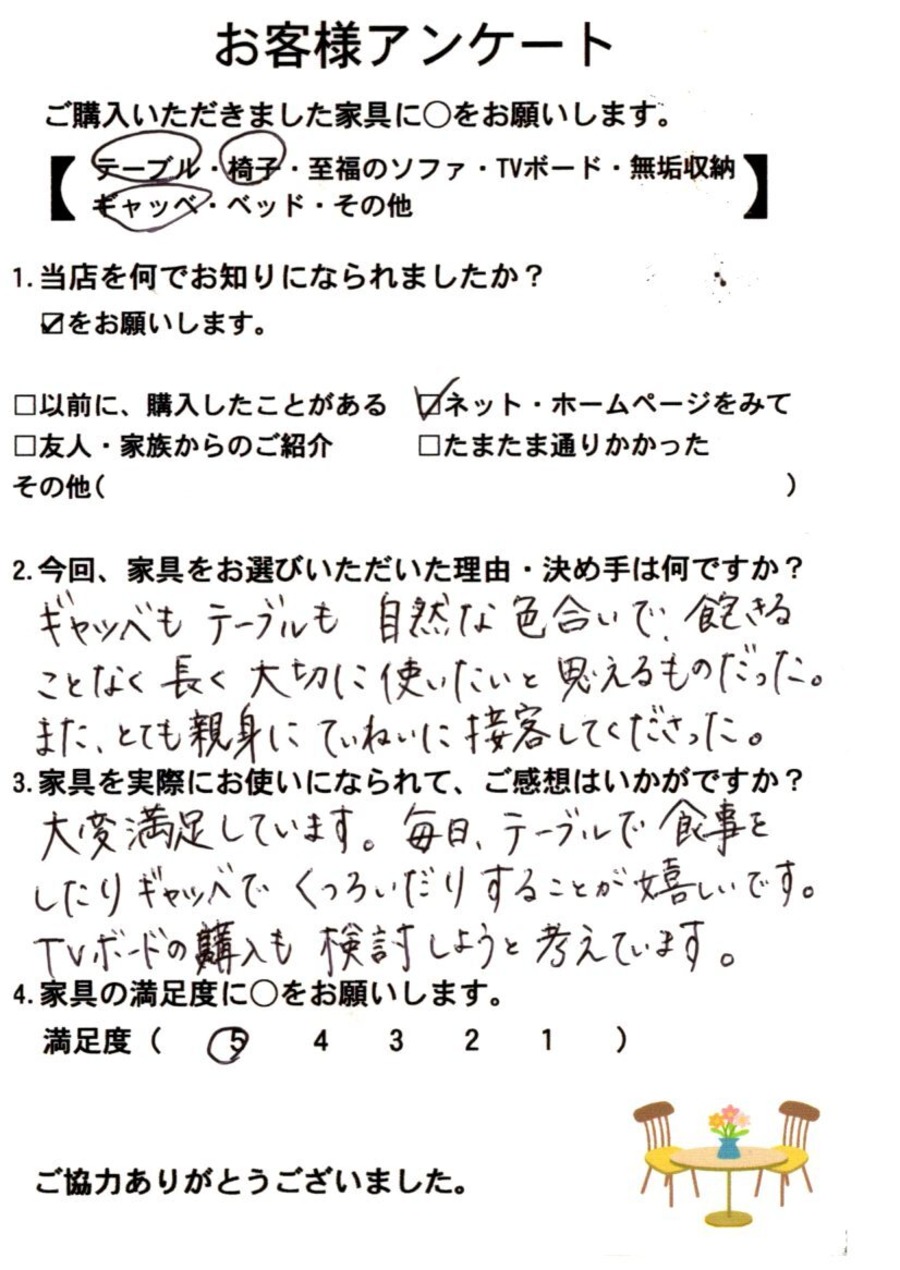 お客様アンケート
ご購入いただきました家具に○をお願いします。
【テーブル・椅子・至福のソファ・TVボード・無垢収納
ギャッベ・ベッド・その他】
1.当店を何でお知りになられましたか？
☑をお願いします。
□以前に、購入したことがある ☑ネット・ホームページをみて
□友人・家族からのご紹介 □たまたま通りかかった
その他( )
2.今回、家具をお選びいただいた理由・決め手は何ですか？
ギャッベも テーブルも 自然な色合いで、飽きる
ことなく長く大切に使いたいと思えるものだった。
また、とても親身にていねいに接客してくださった。
3.家具を実際にお使いになられて、ご感想はいかがですか？
大変満足しています。毎日、テーブルで食事を
したりギャッベでくつろいだりすることが嬉しいです。
TVボードの購入も検討しようと考えています。
4.家具の満足度に○をお願いします。
満足度（ 5 4 3 2 1 ）
ご協力ありがとうございました。